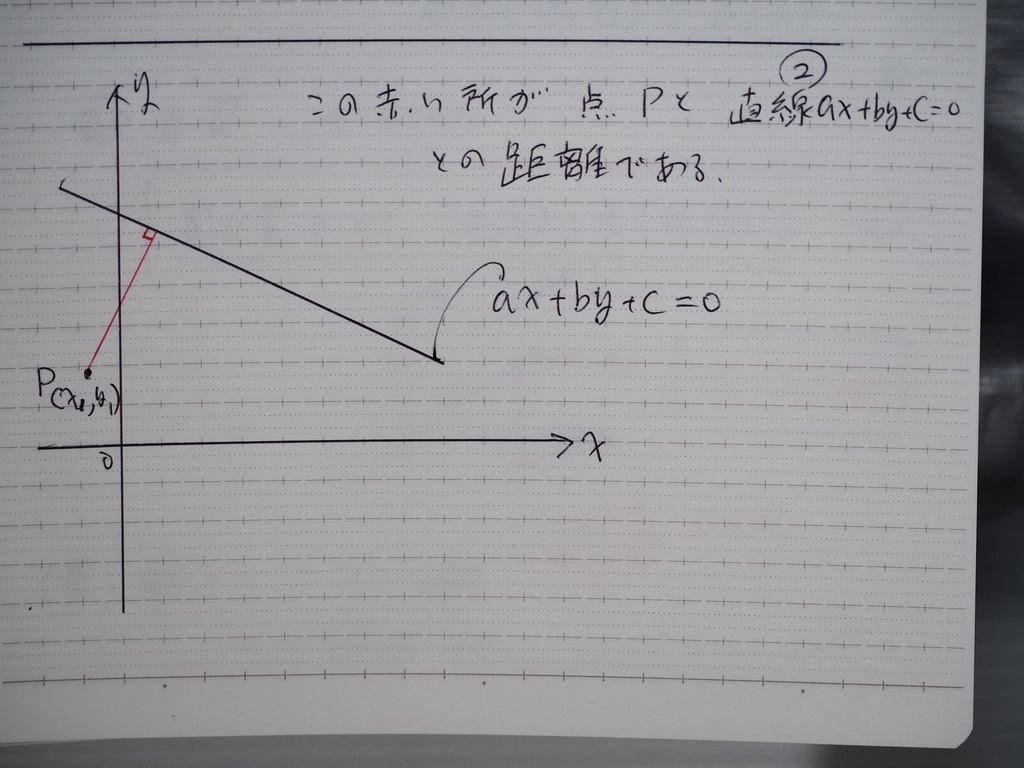 ②
この赤い所が 点 Pと 直線ax+by+c=0
との距離である.
y
ax+by+c=0
P(x₁,y₁)
0
x